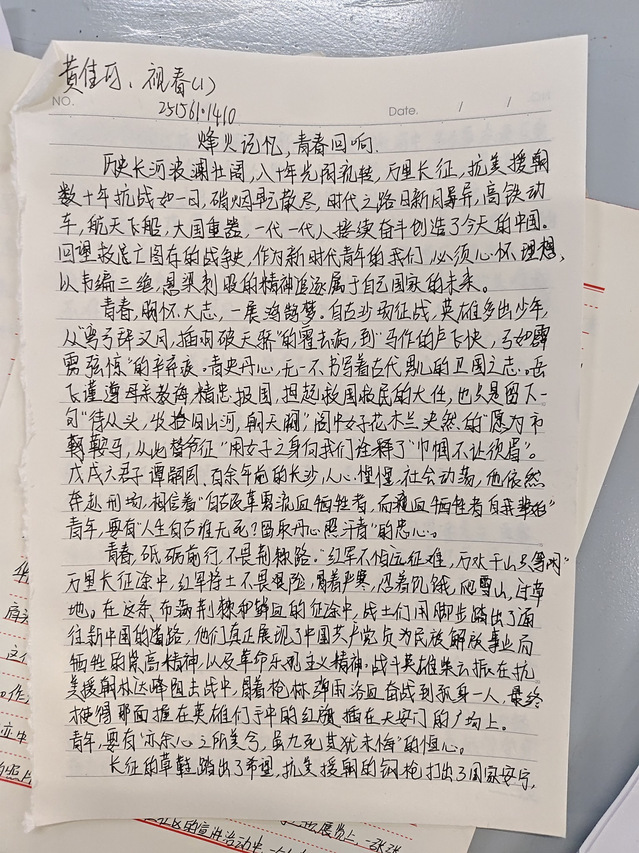 黄佳 、视春(1)
NO. 251561.1410 Date. / /
烽火记忆,青春回响.
历史长河波澜壮阔,八十年光阴流转,万里长征,抗美援朝
数十年抗战如一日,硝烟早已散尽,时代之路日新月异,高铁动
车,航天飞船,大国重器,一代一代人接续奋斗创造了今天的中国。
回望救亡图存的战争史,作为新时代青年的我们,必须心怀理想,
以韦编三绝,悬梁刺股的精神追逐属于自己国家的未来。
青春,胸怀大志,一展鸿鹄梦。自古沙场征战,英雄多出少年,
从"弯弓辞汉月,插羽破天骄"的霍去病,到"马作的卢飞快,弓如霹
雳弦惊"的辛弃疾。青史丹心,无一不书写着古代男儿的卫国之志。岳
飞谨遵母亲教诲,精忠报国,担起救国救民的大任,也只是留下一
句"待从头,收拾旧山河,朝天阙";闺中女子花木兰决然的"愿为市
鞍马,从此替爷征"用女子之身向我们诠释了"巾帼不让须眉"。
戊戌六君子谭嗣同,百余年前的长沙,人心惶惶,社会动荡,他依然
奔赴刑场,相信着"自古改革勇流血牺牲者,而流血牺牲者自我 始"
青年,要有"人生自古谁无死?留取丹心照汗青"的忠心。
青春,砥砺前行,不畏荆棘路。"红军不怕远征难,万水千山只等闲"
万里长征途中,红军将士不畏艰险,冒着严寒,忍着饥饿,爬雪山,过草
地。在这条布满荆棘和鲜血的征途中,战士们用脚步踏出了通
往新中国的道路,他们真正展现了中国共产党员为民族解放事业而
牺牲的崇高精神,以及革命乐观主义精神。战斗英雄柴云振在抗
美援朝朴达峰阻击战中,冒着枪林弹雨浴血奋战到孤身一人,最终
使得那面握在英雄们手中的红旗插在天安门的广场上。
青年,要有"亦余心之所善兮,虽九死其犹未悔"的恒心。
长征的草鞋踏出了希望,抗美援朝的钢枪打出了国家安宁,